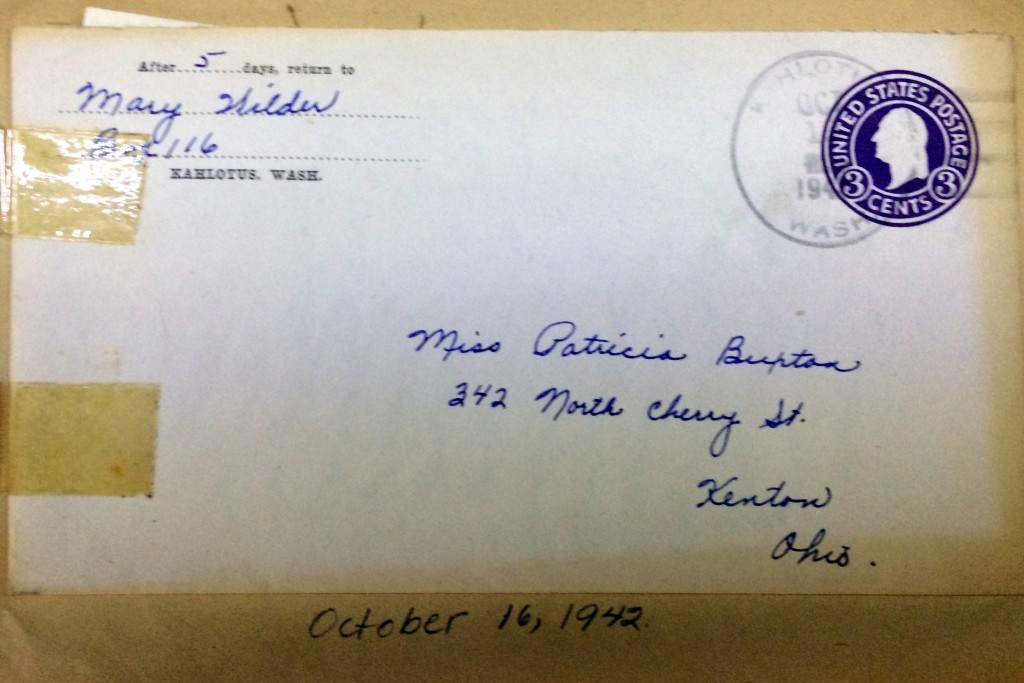 After 5 days, return to
Mary Wilder
Box 116
KAHLOTUS, WASH.
HLOTU
OCT
194
WASH
UNITED STATES POSTAGE
3 CENTS 3
Miss Patricia Bupton
342 North Cherry St.
Kenton
Ohio.
October 16, 1942.